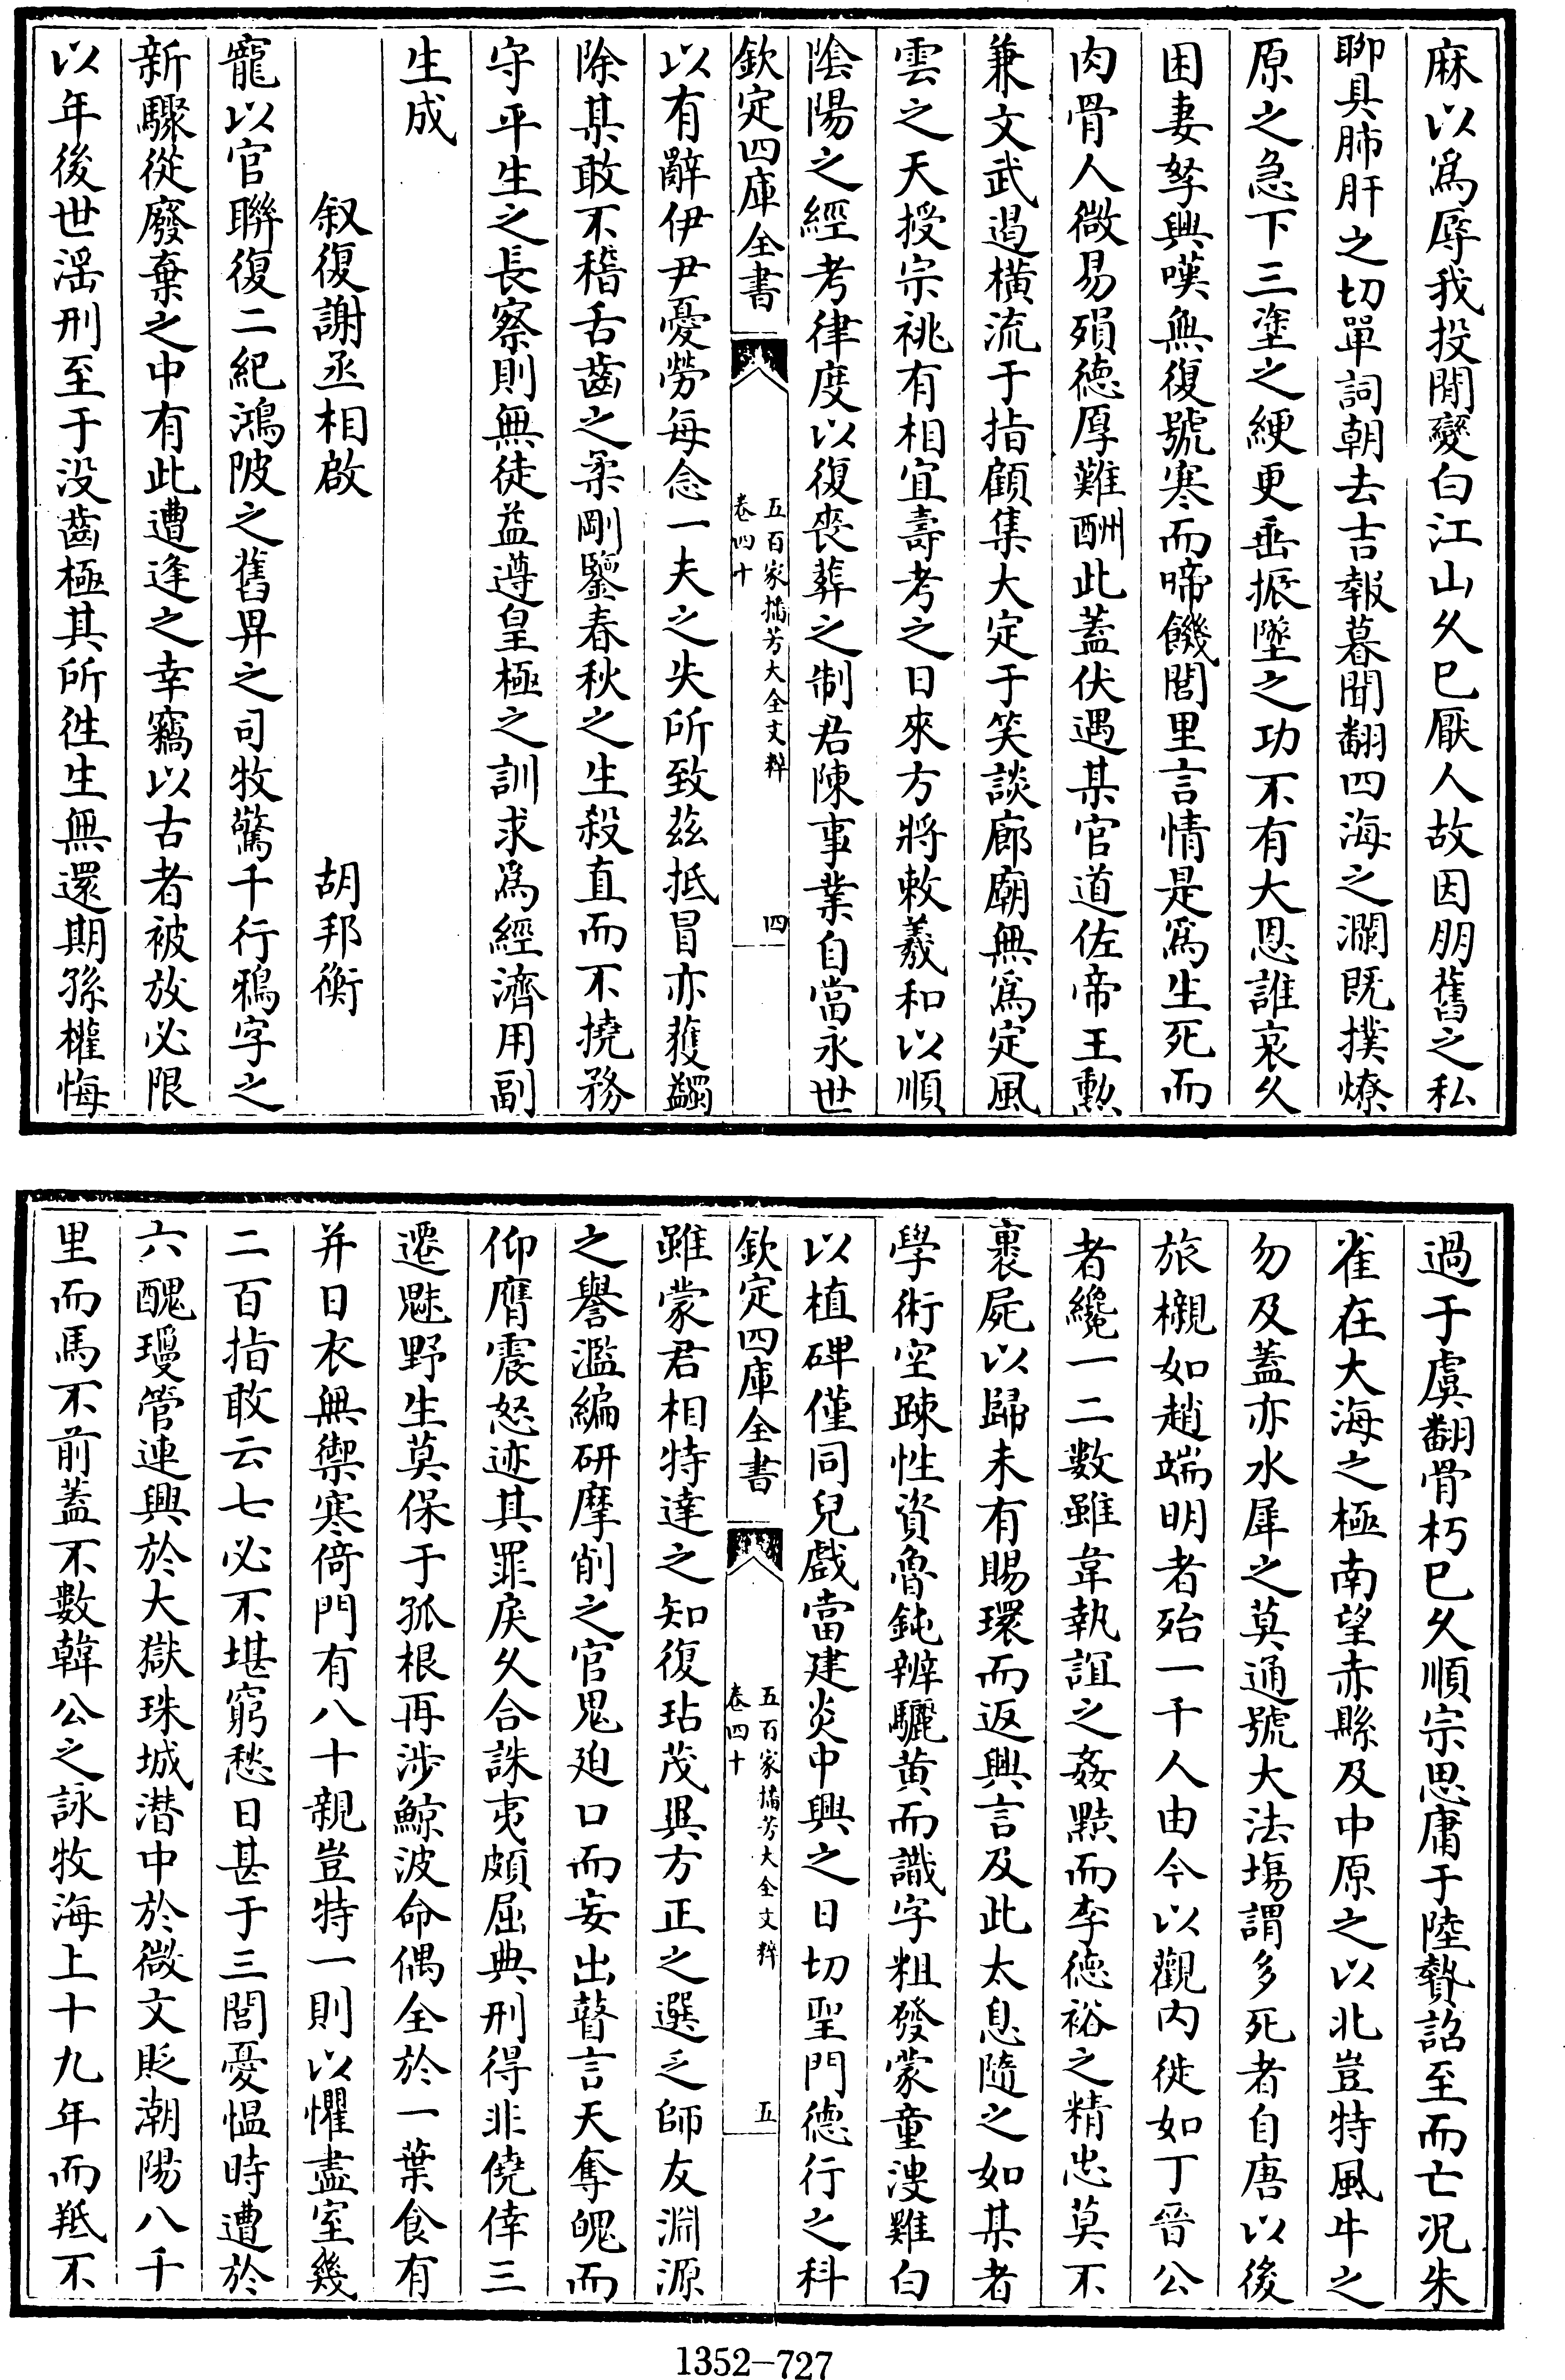 麻以爲辱我投閒變白江山久已厭人故因朋舊之私
聊具肺肝之切單詞朝去吉報暮聞翻四海之瀾既撲燎
原之急下三塗之綆更垂振墜之功不有大恩誰哀久
困妻孥興嘆無復號寒而啼饑閭里言情是爲生死而
肉骨人微易殞德厚難酬此蓋伏遇某官道佐帝王勲
兼文武遏橫流于指顧集大定于笑談廊廟無爲定風
雲之天授宗祧有相宜壽考之日來方將敕羲和以順
陰陽之經考律度以復喪葬之制君陳事業自當永世
欽定四庫全書
五百家播芳大全文粹
卷四十
四
以有辭伊尹憂勞每念一夫之失所致兹抵冒亦獲蠲
除某敢不稽舌齒之柔剛鑒春秋之生殺直而不撓務
守平生之長察則無徒益遵皇極之訓求爲經濟用副
生成
叙復謝丞相啟
胡邦衡
寵以官聯復二紀鴻陂之舊畀之司牧驚千行鴉字之
新驟從廢棄之中有此遭逢之幸竊以古者被放必限
以年後世滛刑至于没齒極其所徃生無還期孫權悔
過于虞翻骨朽已久順宗思庸于陸贄詔至而亡况朱
雀在大海之極南望赤縣及中原之以北豈特風牛之
勿及蓋亦水犀之莫通號大法塲謂多死者自唐以後
旅櫬如趙端明者殆一千人由今以觀内徙如丁晉公
者纔一二數雖韋執誼之姦黠而李德裕之精忠莫不
裹屍以歸未有賜環而返興言及此太息隨之如某者
學術空踈性資魯鈍辨驪黄而識字粗發蒙童溲雞白
以植碑僅同兒戲當建炎中興之日切聖門德行之科
欽定四庫全書
五百家播芳大全文粹
卷四十
五
雖蒙君相特達之知復玷茂異方正之選乏師友淵源
之譽濫編研摩削之官鬼廹口而妄出瞽言天奪魄而
仰膺震怒迹其罪戾久合誅夷頗屈典刑得非僥倖三
遷魅野生莫保于孤根再涉鯨波命偶全於一葉食有
并日衣無禦寒倚門有八十親豈特一則以懼盡室幾
二百指敢云七必不堪窮愁日甚于三閭憂愠時遭於
六醜瓊管連興於大獄珠城潜中於微文貶潮陽八千
里而馬不前蓋不數韓公之詠牧海上十九年而羝不
1352-727